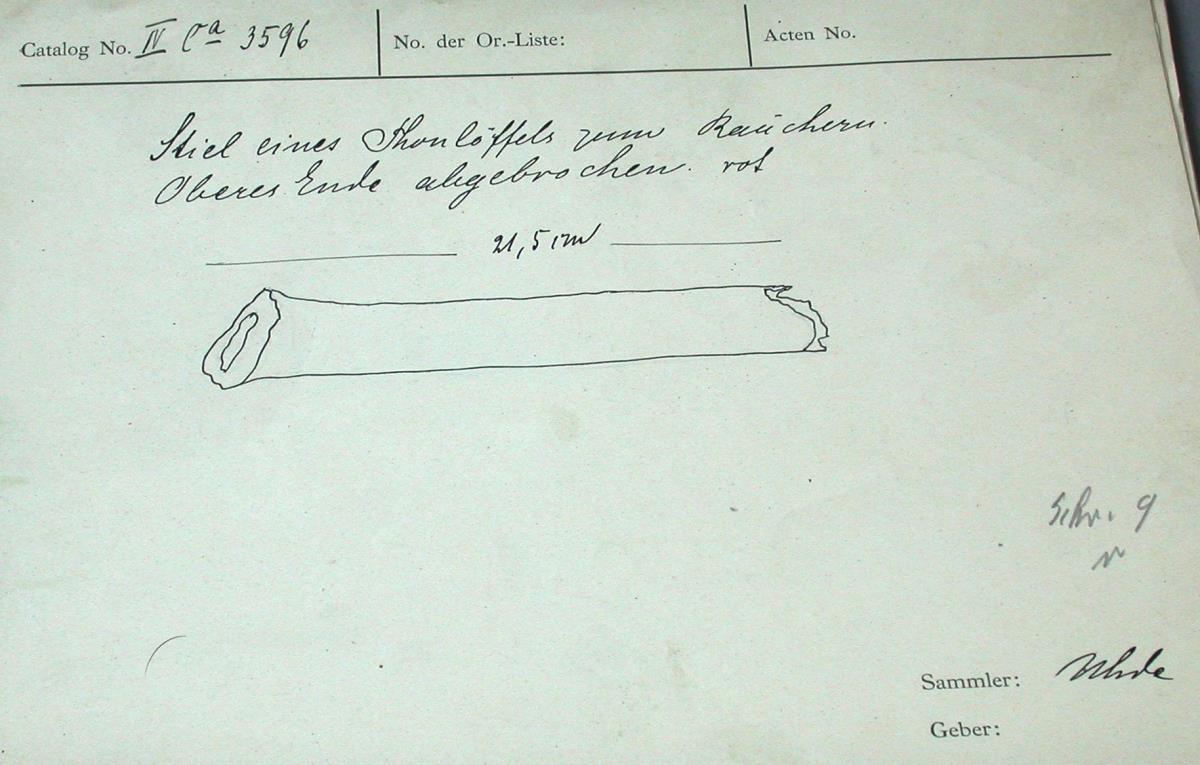 Catalog No. IV Ca 3596
No. der Or.-Liste:
Acten No.
Stiel eines Thonlöffels zum Räuchern.
Oberes Ende abgebrochen. rot
21,5 cm
Schr. 9
Sammler: Uhde
Geber: